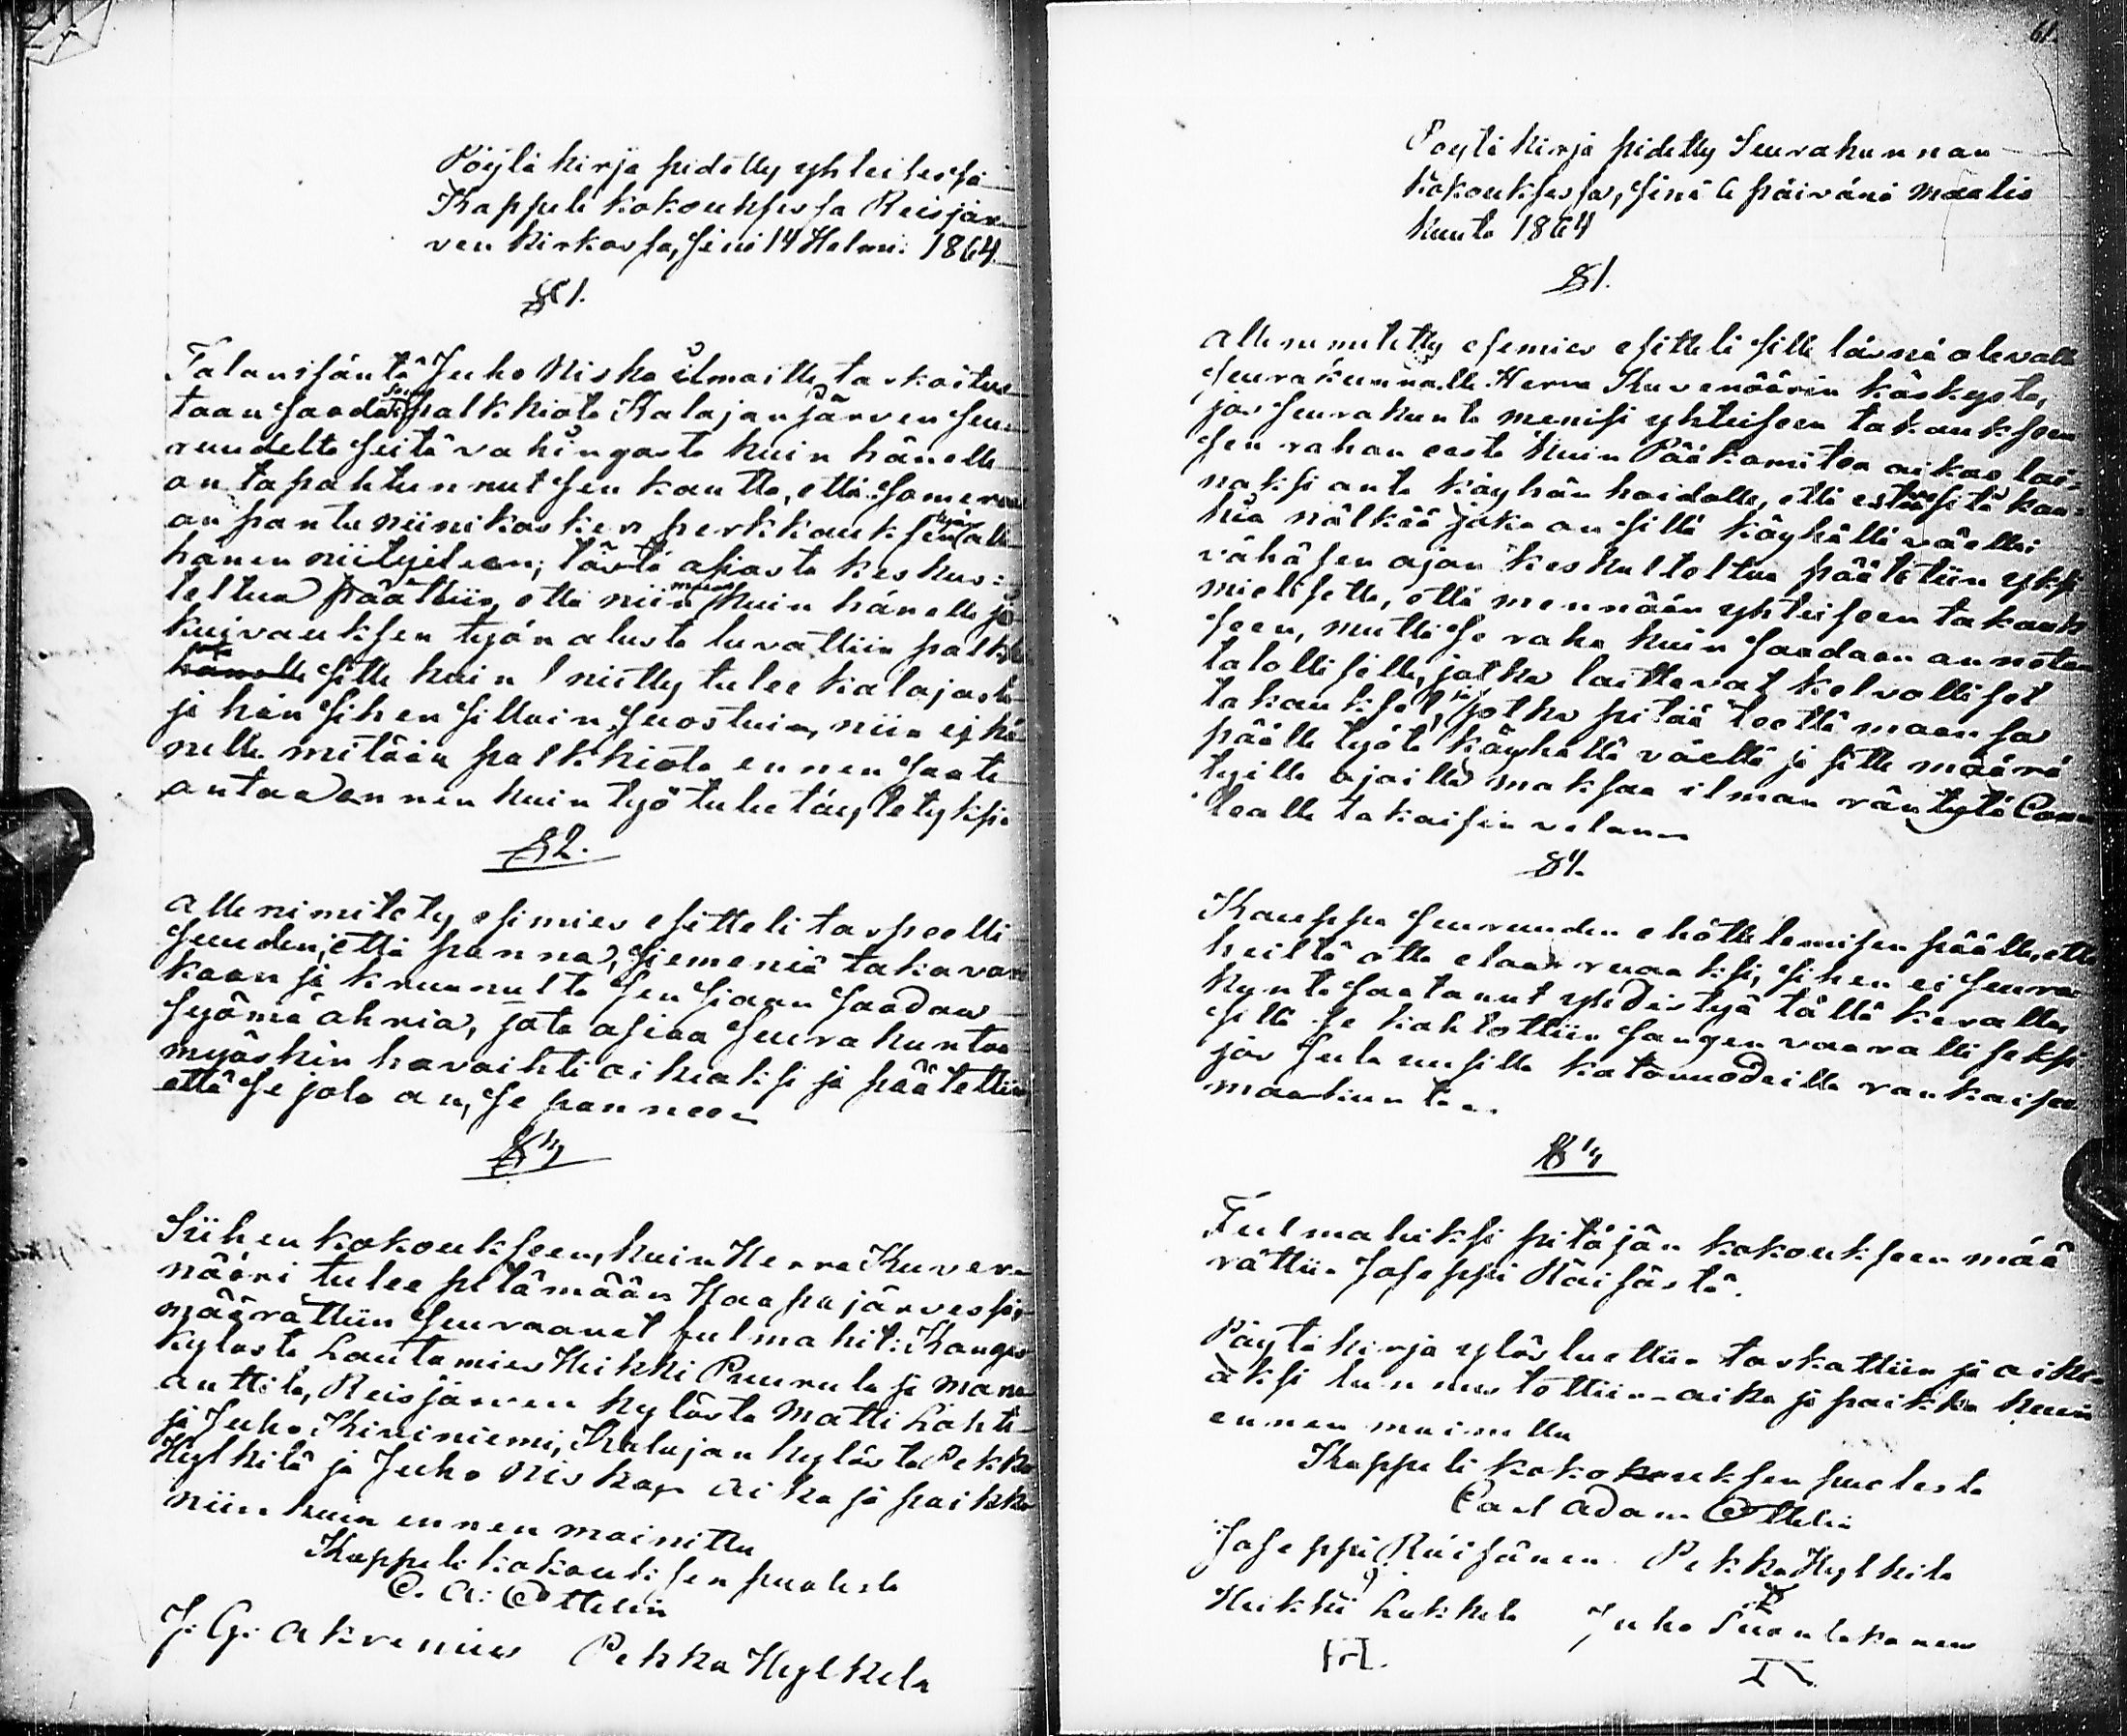 Pöytä kirja pidetty yhteisessä
Kappeli kokouksessa Reisjär
ven kirkossa, sinä 14 Helmi: 1864
§ 1.
Talonisäntä Juho Niska ilmoitti tarkoitus
taan saada palkkiota Kalajanjärven Seu
ruudelta siitä vahingosta kuin hänelle
on tapahtunnut sen kautta, että
on pantu perkkauksen työn alle
hänen niityilleen; tästä asiasta keskus:
teltua päättiin, että niin kuin hänelle jo
kuivauksen työn alusta luvattiin palkka
hänelle sille kuin niitty tulee kalajasta
ja hän sihen silloin suostuin, niin ej hä
nelle mitään palkkiota ennen saata
antaa ennen kuin työ tulee täytetyksi
§ 2.
Allenimitety esimies esitteli tarpeelli
suuden, että panna, siemeniä takavari
kaan ja kruunulta sen siaan saadaan
syömä ohria, jota asiaa Seurakuntaa
myöskin havaihti oikiaksi ja päätettiin
että se jola on, se pannoon
§ 3
Siihen kokoukseen, kuin Herra Kuver
nööri tulee pitämään Haapajärvessä,
määrättiin seuraavat fulmahit: Kangas
kylästä Lautamies Heikki Puurula ja
Anttila, Reisjärven kylästä Matti Lähti
ja Juho Kiviniemi, Kalajan kylästä Pekka
Hylkilä ja Juho Niska, Aika ja paikka
niin kuin ennen mainittu
Kappeli kokouksen puolesta
C. A: Ottelin
J: G: Akrenius Pekka Hylkilä
61.
Poytä kirja pidetty Seurakunnan
kokouksessa, sinä 6 päivänä Maalis
kuuta 1864
§ 1.
Allenimitetty esimies esitteli sille läsnä olevalle
seurakunnalle Herra Kuvernöörin käskystä,
jos seurakunta menisi yhteiseen takaukseen
sen rahan eesta kuin Pääkomitea aikoo lai=
naksi anta köyhän hoidolle, että estää sitä kau=
hia nälkää joka on sillä köyhällä väellä
vähäsen ajan keskultoltua päätettiin yksi
mielisette, että mennään yhteiseen takauk
seen, mutta se raha kuin saadaan annetan
talollisille, jotka laittavat kelvolliset
takaukset, jotka pitää teettä maansa
päälle työtä köyhällä väellä ja sille määrä
tyillä ajoilla maksaa ilman räntytä Com
tealle takaisin velann
§ 2.
Kauppa Seuruuden ehöttelemisen päälle, että
heiltä otta elaan ruaaksi, sihen ei seura
kunta saatanut yhdistyä tällä keralla,
sillä se kahtottiin sangen vaaralliseksi
jos tula uusille katovuodeilla rankaisee
maakuntaa.
§ 3
Fulmahiksi pitäjän kokoukseen mää
rättiin Joseppi Räisästä.
Pöytä kirja ylösluettiin tarkattiin ja oiki
aksi tunnustettiin aika ja paikka kuin
ennen mainittu
Kappeli kokouksen puolesta
Carl Adam Ottelin
Joseppi Räisänen Pekka Hylkilä
Heikki Lukkela Juho